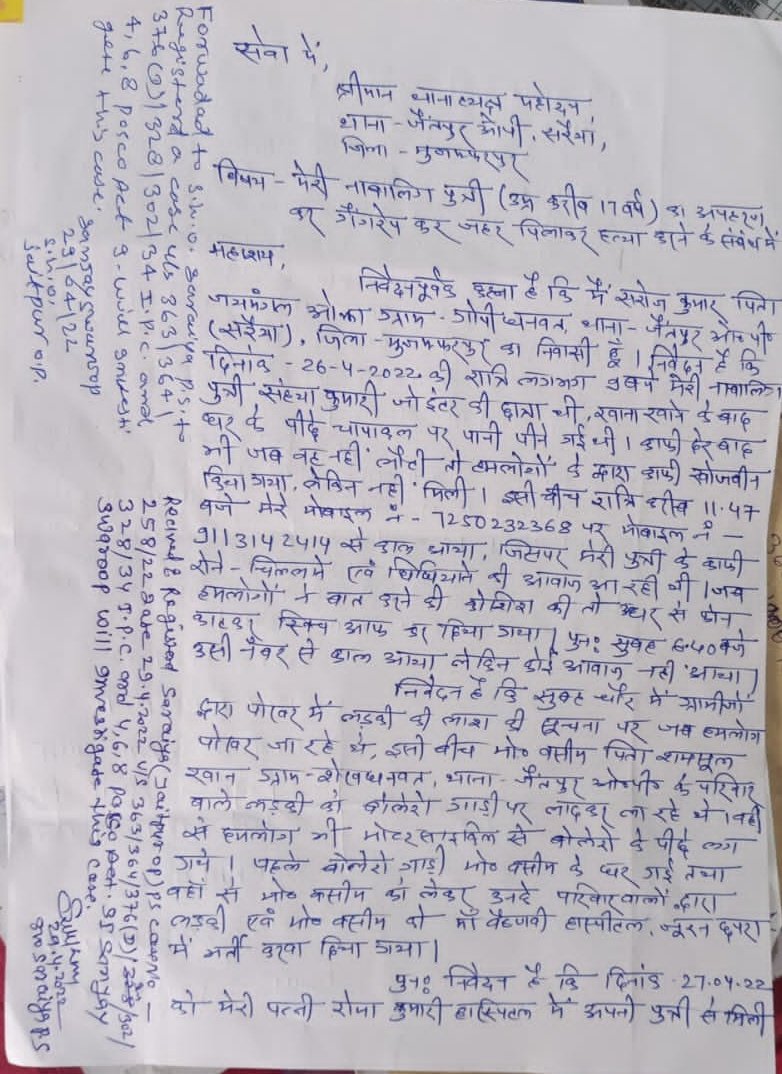 सेवा में,
श्रीमान थानाध्यक्ष महोदय,
थाना - जैतपुर ओपी, सरैया,
जिला - मुजफ्फरपुर
विषय - मेरी नाबालिग पुत्री (उम्र करीब 17 वर्ष) का अपहरण
कर गैंगरेप कर जहर पिलाकर हत्या करने के संबंध में
महाशय,
निवेदनपूर्वक कहना है कि मैं सरोज कुमार पिता
जयमंगल ओझा ग्राम - गोपी धनवत, थाना - जैतपुर ओ०पी०
(सरैया), जिला - मुजफ्फरपुर का निवासी हूँ। निवेदन है कि
दिनांक - 26-4-2022 की रात्रि लगभग बजे मेरी नाबालिग
पुत्री, संध्या कुमारी जो इंटर की छात्रा थी, खाना खाने के बाद
घर के पीछे चापाकल पर पानी पीने गई थी। काफी देर बाद
भी जब वह नहीं लौटी तो हमलोगों के द्वारा काफी खोजबीन
किया गया, लेकिन नहीं मिली। इसी बीच रात्रि करीब 11.47
बजे मेरे मोबाइल नं - 7250232368 पर मोबाइल नं -
9113142414 से काल आया, जिसपर मेरी पुत्री के काफी
रोने - चिल्लाने एवं घिघियाने की आवाज आ रही थी। जब
हमलोगों ने बात करने की कोशिश की तो उधर से फोन
काटकर स्विच आफ कर दिया गया। पुनः सुबह 6.40 बजे
उसी नंबर से काल आया लेकिन कोई आवाज नहीं आया।
निवेदन है कि सुबह चौर में ग्रामीणों
द्वारा पोखर में लड़की की लाश की सूचना पर जब हमलोग
पोखर जा रहे थे, इसी बीच मो० वसीम पिता शमसूल
खान ग्राम - शेखधनवत, थाना - जैतपुर ओ०पी० के परिवार
वाले लड़की को बोलेरो गाड़ी पर लादकर ला रहे थे। वहीं
से हमलोग भी मोटरसाइकिल से बोलेरो के पीछे लग
गये। पहले बोलेरो गाड़ी मो० वसीम के घर गई तथा
वहाँ से मो० वसीम को लेकर उनके परिवारवालों द्वारा
लड़की एवं मो० वसीम को माँ वैष्णवी हास्पीटल, जूरन छपरा
में भर्ती करवा दिया गया।
पुनः निवेदन है कि दिनांक - 27.04.22
को मेरी पत्नी रोमा कुमारी हास्पिटल में अपनी पुत्री से मिली
Forwadad to S.H.O. Saraiya P.S. to
Registerd a case u/s 363/364/
376(D)/328/302/34 I.P.C. and
4,6,8 Posco Act. I will Investi-
gate this case.
Sanjay Swaroop
29/04/22
S.H.O.
Jaitpur O.P.
Recived & Registred Saraiya (Jaitpur OP) PS Case No -
258/22 Date 29.4.2022 U/S 363/364/376(D)/302/
328/34 I.P.C. and 4,6,8 Posco Act. SI Sanjay
Swaroop will Investigate this case.
29.4.2022